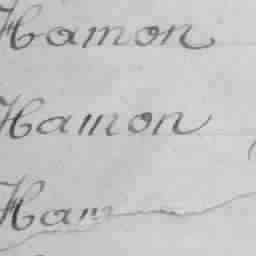 Hamon
Hamon
Ham